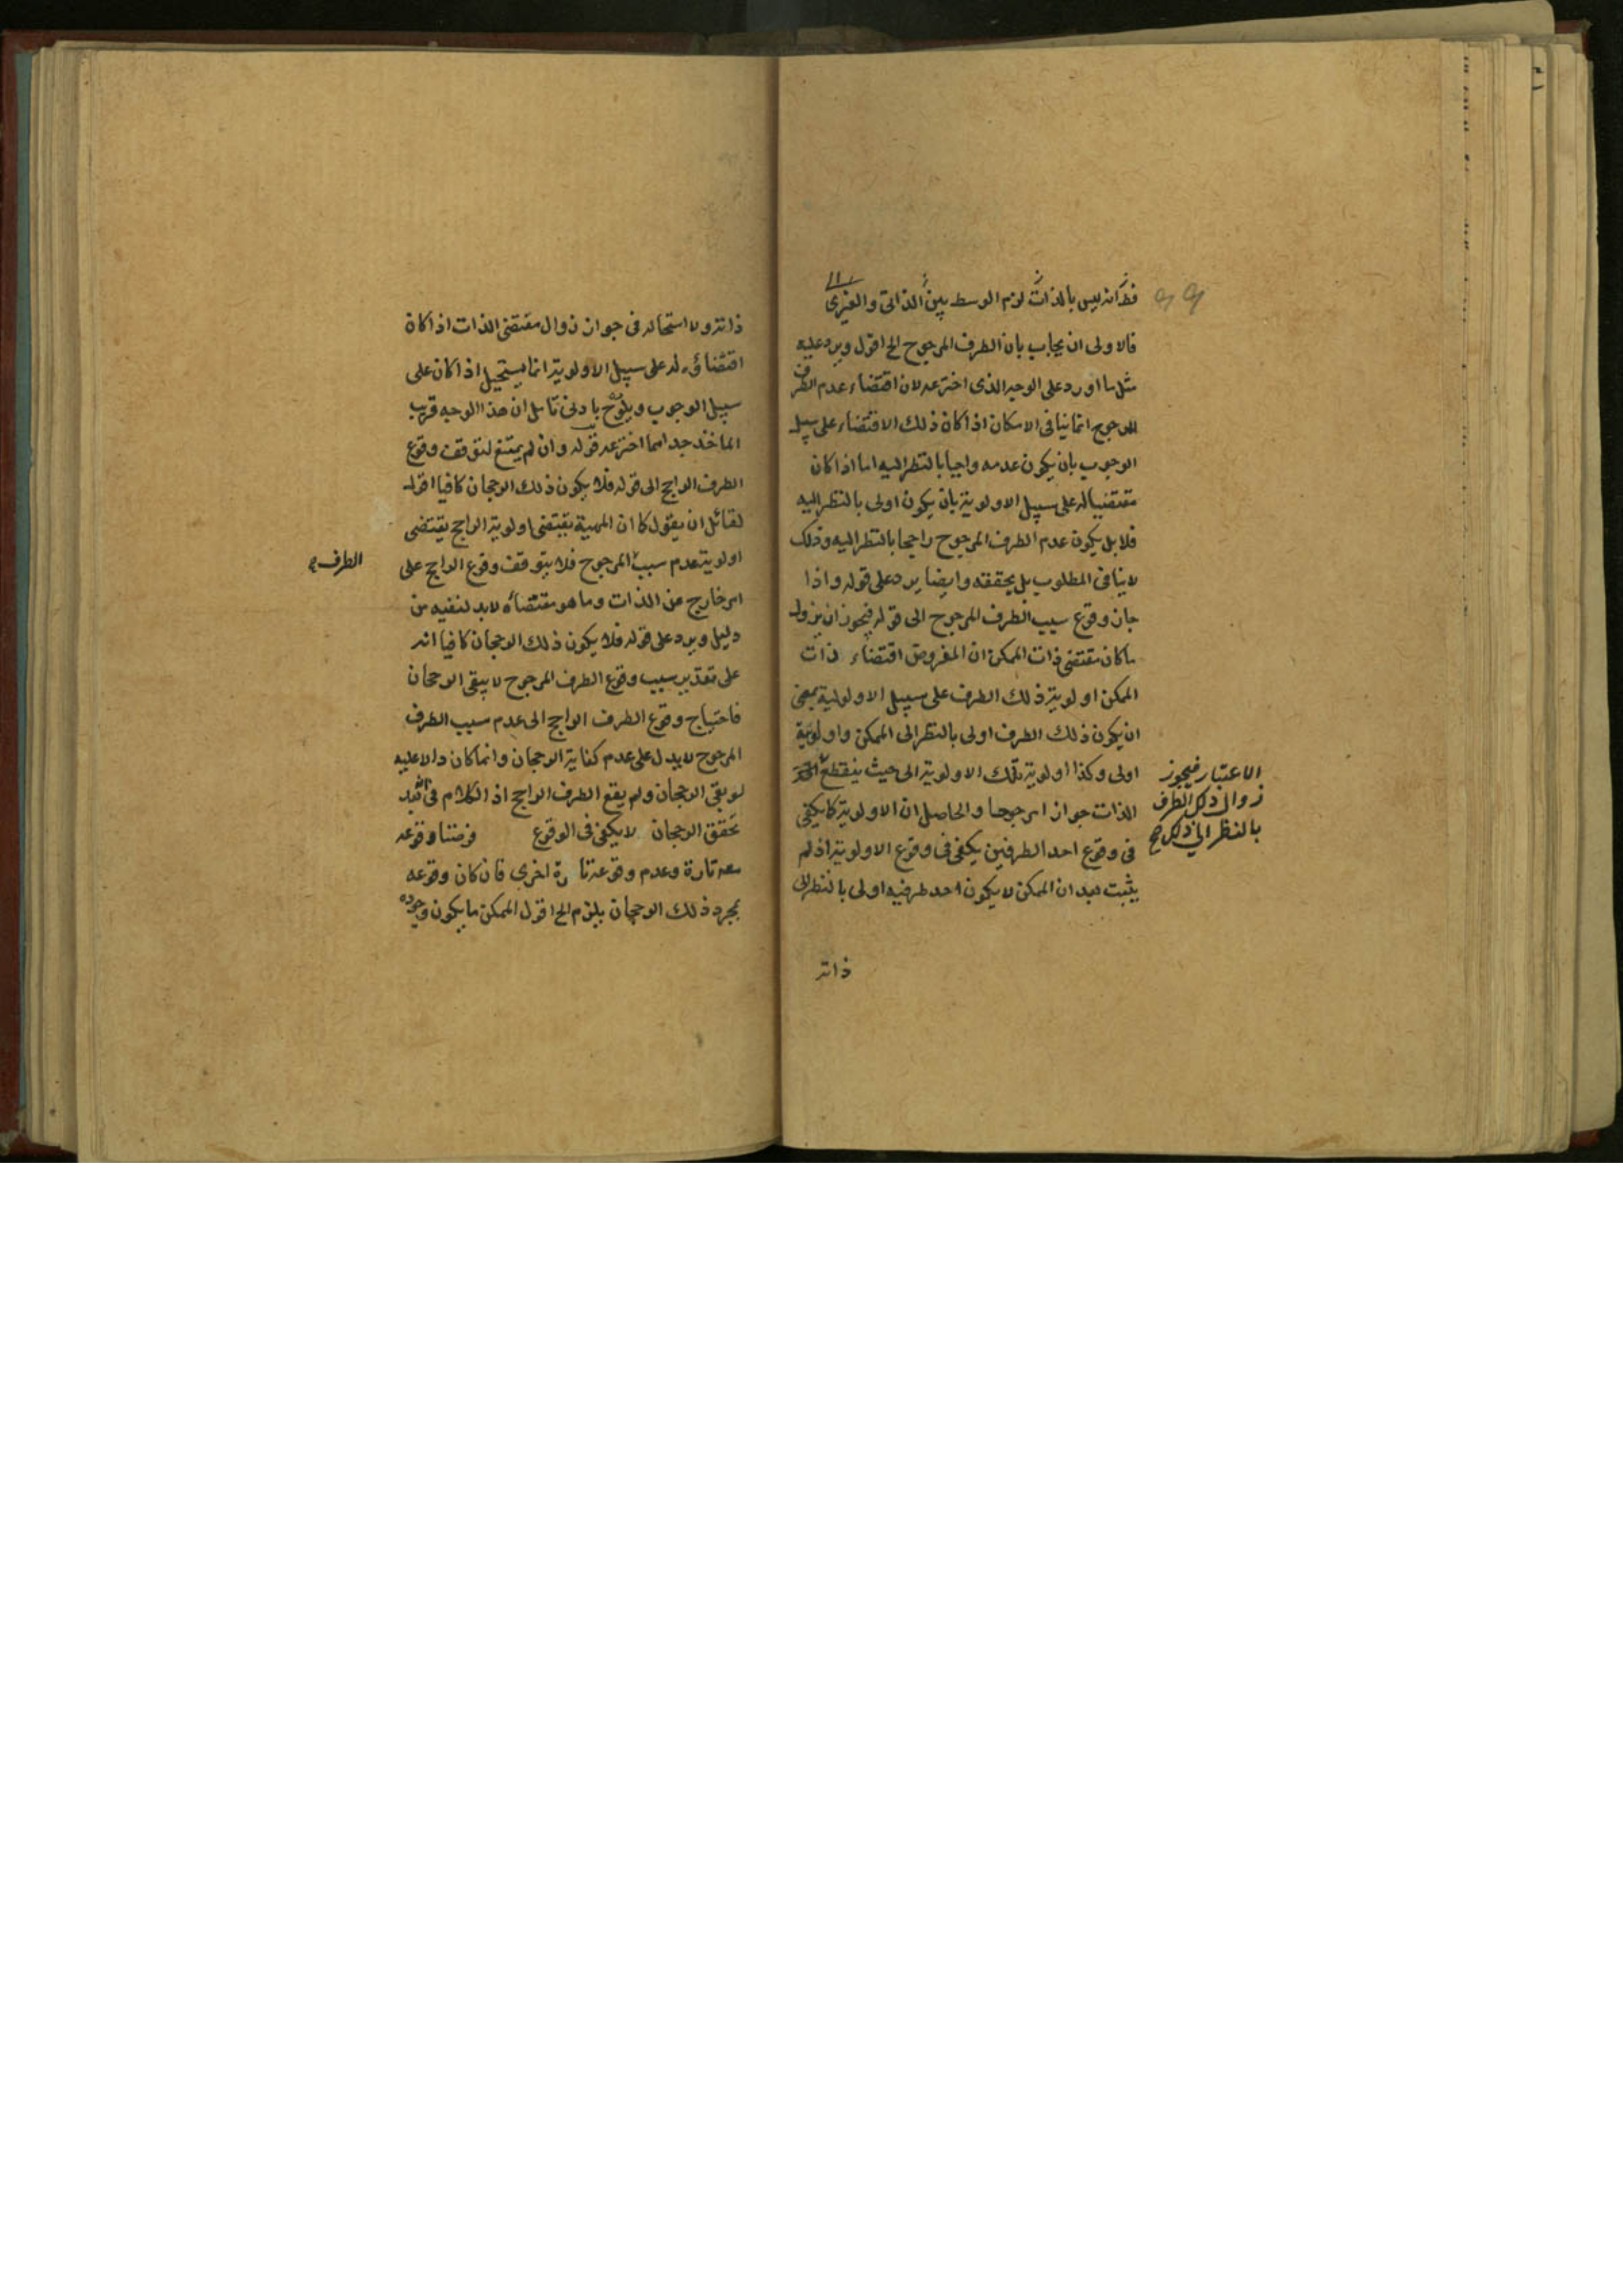 فظ انه ليس بالذات لزم الوسط بين الذاتى والغيرى
فالاولى ان يجاب بان الطرف المرجوح الخ اقول ويرد عليه
مثل ما اورد على الوجه الذى اخترعه لان اقتضاء عدم الطرف
المرجوح انما ينافى الامكان اذا كان ذلك الاقتضاء على سبيل
الوجوب بان يكون عدمه واجبا بالنظر اليه اما اذا كان
مقتضيا له على سبيل الاولوية بان يكون اولى بالنظر اليه
فلا بل يكون عدم الطرف المرجوح راجحا بالنظر اليه وذلك
لا ينافى المطلوب بل يحققه وايضا يرد على قوله واذا
جاز وقوع سبب الطرف المرجوح الى قوله فيجوز ان يزول
ما كان مقتضى ذات الممكن ان المفروض اقتضاء ذات
الممكن اولوية ذلك الطرف على سبيل الاولولية بمعنى
ان يكون ذلك الطرف اولى بالنظر الى الممكن واولوية
اولى وكذا اولوية تلك الاولوية الى حيث ينقطع
الاعتبار فيجوز
زوال ذلك الطرف
بالنظر الى ذلك صح
الذات جوازا مرجوحا والحاصل ان الاولوية كما يكفى
فى وقوع احد الطرفين يكفى فى وقوع الاولوية اذ لم
يثبت بعد ان الممكن لا يكون احد طرفيه اولى بالنظر الى
ذاته
ذاته ولا استحاله فى جواز زوال مقتضى الذات اذا كان
اقتضاؤه له على سبيل الاولوية انما يستحيل اذا كان على
سبيل الوجوب ويلوح بادنى تأمل ان هذا الوجه قريب
الماخذ جدا مما اخترعه قوله وان لم يمتنع لتوقف وقوع
الطرف الراجح الى قوله فلا يكون ذلك الرجحان كافيا اقول
لقائل ان يقول كما ان المهية يقتضى اولوية الراجح يقتضى
اولوية عدم سبب المرجوح فلا يتوقف وقوع الراجح على
الطرف
امر خارج عن الذات وما هو مقتضاه لابد لنفيه من
دليل ويرد على قوله فلا يكون ذلك الرجحان كافيا انه
على تقدير سبب وقوع الطرف المرجوح لا يبقى الرجحان
فاحتياج وقوع الطرف الراجح الى عدم سبب الطرف
المرجوح لا يدل على عدم كفاية الرجحان وانما كان دالا عليه
لو بقى الرجحان ولم يقع الطرف الراجح اذ الكلام فى
تحقق الرجحان لا يكفى فى الوقوع فرضنا وقوعه
معه تارة وعدم وقوعه تارة اخرى فان كان وقوعه
بمجرد ذلك الرجحان يلزم الخ اقول الممكن ما يكون وجوده